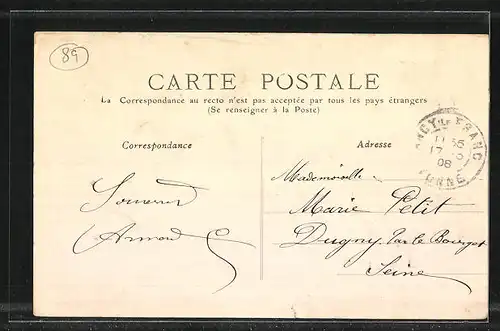 89
CARTE POSTALE
La Correspondance au recto n'est pas acceptée par tous les pays étrangers
(Se renseigner à la Poste)
Correspondance
Adresse
ANCY-LE-FRANC
11 35
17
08
YONNE
Mademoiselle
Marie Petit
Dugny par le Bourget
Seine
Souvenir
Armand